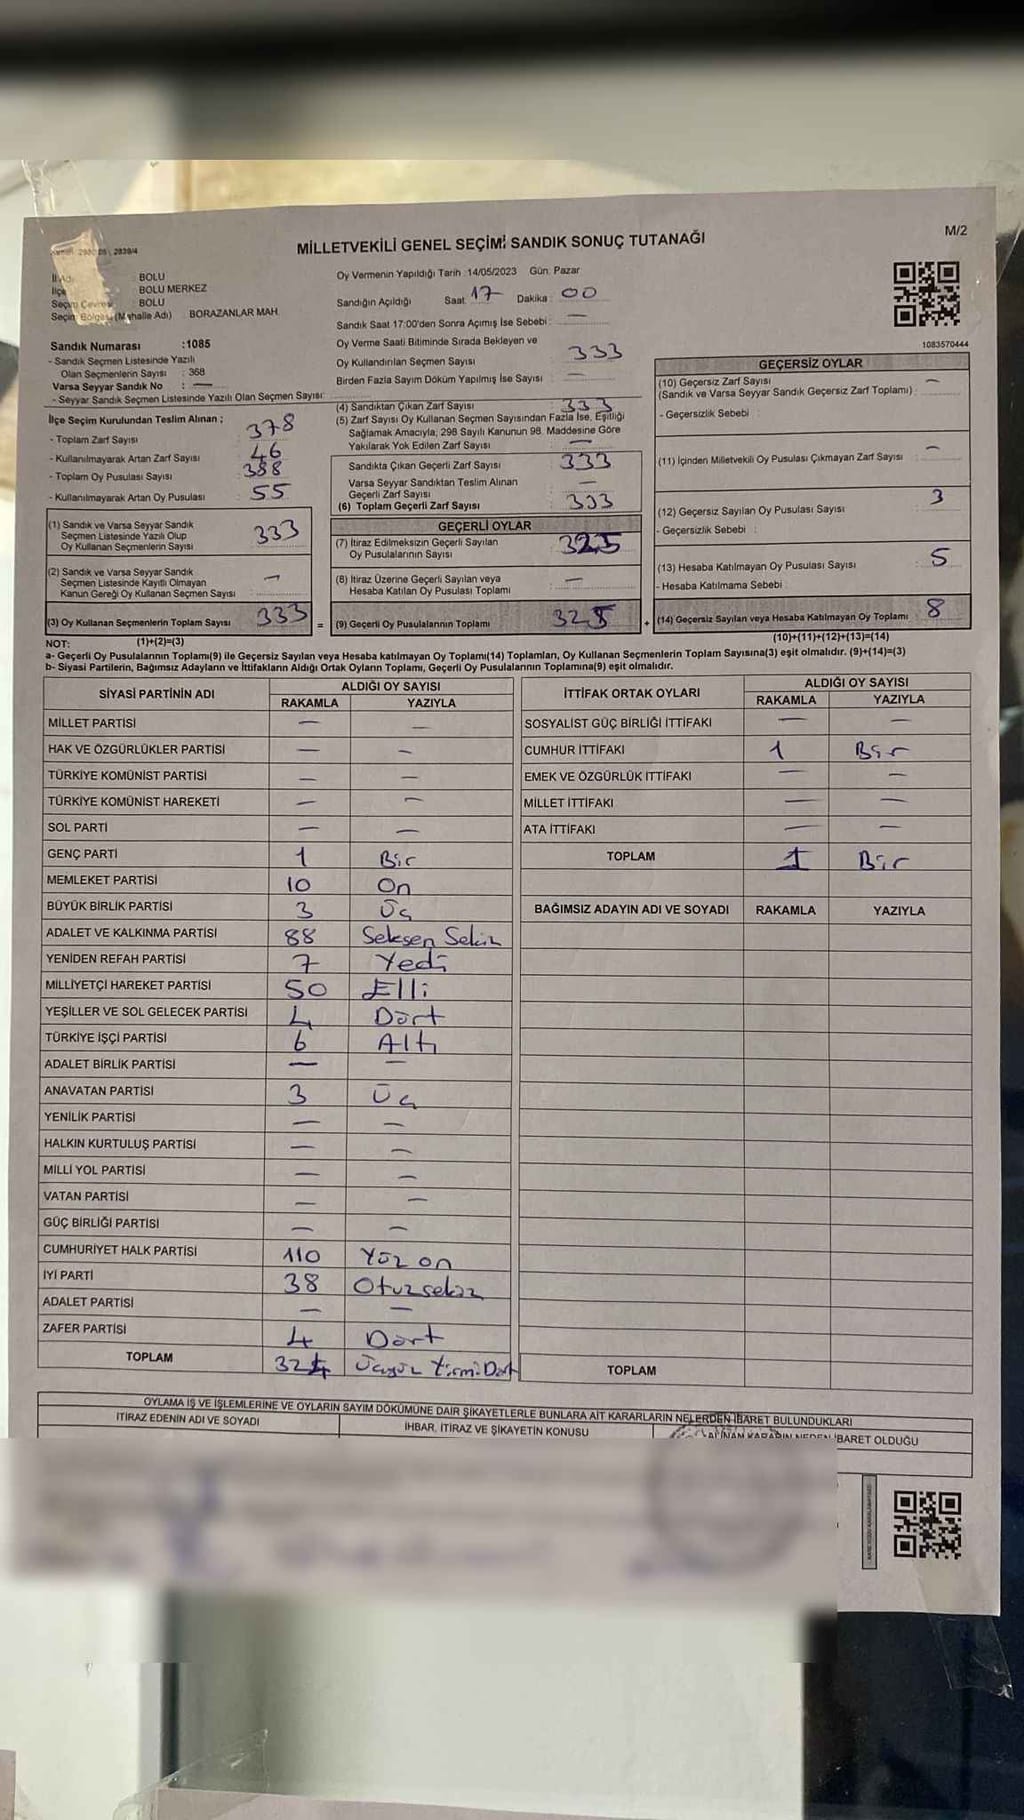 MİLLETVEKİLİ GENEL SEÇİMİ SANDIK SONUÇ TUTANAĞI
M/2
İl Adı : BOLU
İlçe : BOLU MERKEZ
Seçim Çevresi : BOLU
Seçim Bölgesi (Mahalle Adı) : BORAZANLAR MAH.
Oy Vermenin Yapıldığı Tarih :14/05/2023 Gün: Pazar
Sandığın Açıldığı Saat: 17 Dakika: 00
Sandık Saat 17:00'den Sonra Açımış İse Sebebi : —
Oy Verme Saati Bitiminde Sırada Bekleyen ve
Oy Kullandırılan Seçmen Sayısı 333
Birden Fazla Sayım Döküm Yapılmış İse Sayısı : —
1083570444
Sandık Numarası :1085
- Sandık Seçmen Listesinde Yazılı
Olan Seçmenlerin Sayısı : 368
Varsa Seyyar Sandık No : —
- Seyyar Sandık Seçmen Listesinde Yazılı Olan Seçmen Sayısı:
İlçe Seçim Kurulundan Teslim Alınan ;
- Toplam Zarf Sayısı 378
- Kullanılmayarak Artan Zarf Sayısı 46
- Toplam Oy Pusulası Sayısı 388
- Kullanılmayarak Artan Oy Pusulası 55
(1) Sandık ve Varsa Seyyar Sandık
Seçmen Listesinde Yazılı Olup
Oy Kullanan Seçmenlerin Sayısı 333
(2) Sandık ve Varsa Seyyar Sandık
Seçmen Listesinde Kayıtlı Olmayan
Kanun Gereği Oy Kullanan Seçmen Sayısı —
(3) Oy Kullanan Seçmenlerin Toplam Sayısı 333 =
(4) Sandıktan Çıkan Zarf Sayısı 333
(5) Zarf Sayısı Oy Kullanan Seçmen Sayısından Fazla İse, Eşitliği
Sağlamak Amacıyla, 298 Sayılı Kanunun 98. Maddesine Göre
Yakılarak Yok Edilen Zarf Sayısı —
Sandıkta Çıkan Geçerli Zarf Sayısı 333
Varsa Seyyar Sandıktan Teslim Alınan
Geçerli Zarf Sayısı —
(6) Toplam Geçerli Zarf Sayısı 333
GEÇERLİ OYLAR
(7) İtiraz Edilmeksizin Geçerli Sayılan
Oy Pusulalarının Sayısı 325
(8) İtiraz Üzerine Geçerli Sayılan veya
Hesaba Katılan Oy Pusulası Toplamı —
(9) Geçerli Oy Pusulalarının Toplamı 325 +
GEÇERSİZ OYLAR
(10) Geçersiz Zarf Sayısı —
(Sandık ve Varsa Seyyar Sandık Geçersiz Zarf Toplamı) :
- Geçersizlik Sebebi :
(11) İçinden Milletvekili Oy Pusulası Çıkmayan Zarf Sayısı —
(12) Geçersiz Sayılan Oy Pusulası Sayısı 3
- Geçersizlik Sebebi :
(13) Hesaba Katılmayan Oy Pusulası Sayısı 5
- Hesaba Katılmama Sebebi :
(14) Geçersiz Sayılan veya Hesaba Katılmayan Oy Toplamı 8
NOT: (1)+(2)=(3)
(10)+(11)+(12)+(13)=(14)
a- Geçerli Oy Pusulalarının Toplamı(9) ile Geçersiz Sayılan veya Hesaba katılmayan Oy Toplamı(14) Toplamları, Oy Kullanan Seçmenlerin Toplam Sayısına(3) eşit olmalıdır. (9)+(14)=(3)
b- Siyasi Partilerin, Bağımsız Adayların ve İttifakların Aldığı Ortak Oyların Toplamı, Geçerli Oy Pusulalarının Toplamına(9) eşit olmalıdır.
SİYASİ PARTİNİN ADI ALDIĞI OY SAYISI
RAKAMLA YAZIYLA
MİLLET PARTİSİ — —
HAK VE ÖZGÜRLÜKLER PARTİSİ — —
TÜRKİYE KOMÜNİST PARTİSİ — —
TÜRKİYE KOMÜNİST HAREKETİ — —
SOL PARTİ — —
GENÇ PARTİ 1 Bir
MEMLEKET PARTİSİ 10 On
BÜYÜK BİRLİK PARTİSİ 3 Üç
ADALET VE KALKINMA PARTİSİ 88 Seksen Sekiz
YENİDEN REFAH PARTİSİ 7 Yedi
MİLLİYETÇİ HAREKET PARTİSİ 50 Elli
YEŞİLLER VE SOL GELECEK PARTİSİ 4 Dört
TÜRKİYE İŞÇİ PARTİSİ 6 Altı
ADALET BİRLİK PARTİSİ — —
ANAVATAN PARTİSİ 3 Üç
YENİLİK PARTİSİ — —
HALKIN KURTULUŞ PARTİSİ — —
MİLLİ YOL PARTİSİ — —
VATAN PARTİSİ — —
GÜÇ BİRLİĞİ PARTİSİ — —
CUMHURİYET HALK PARTİSİ 110 Yüz on
İYİ PARTİ 38 Otuzsekiz
ADALET PARTİSİ — —
ZAFER PARTİSİ 4 Dört
TOPLAM 324 Üçyüz Yirmi Dört
İTTİFAK ORTAK OYLARI ALDIĞI OY SAYISI
RAKAMLA YAZIYLA
SOSYALİST GÜÇ BİRLİĞİ İTTİFAKI — —
CUMHUR İTTİFAKI 1 Bir
EMEK VE ÖZGÜRLÜK İTTİFAKI — —
MİLLET İTTİFAKI — —
ATA İTTİFAKI — —
TOPLAM 1 Bir
BAĞIMSIZ ADAYIN ADI VE SOYADI RAKAMLA YAZIYLA
TOPLAM
OYLAMA İŞ VE İŞLEMLERİNE VE OYLARIN SAYIM DÖKÜMÜNE DAİR ŞİKAYETLERLE BUNLARA AİT KARARLARIN NELERDEN İBARET BULUNDUKLARI
İTİRAZ EDENİN ADI VE SOYADI
İHBAR, İTİRAZ VE ŞİKAYETİN KONUSU
ALINAN KARARIN NEDEN İBARET OLDUĞU